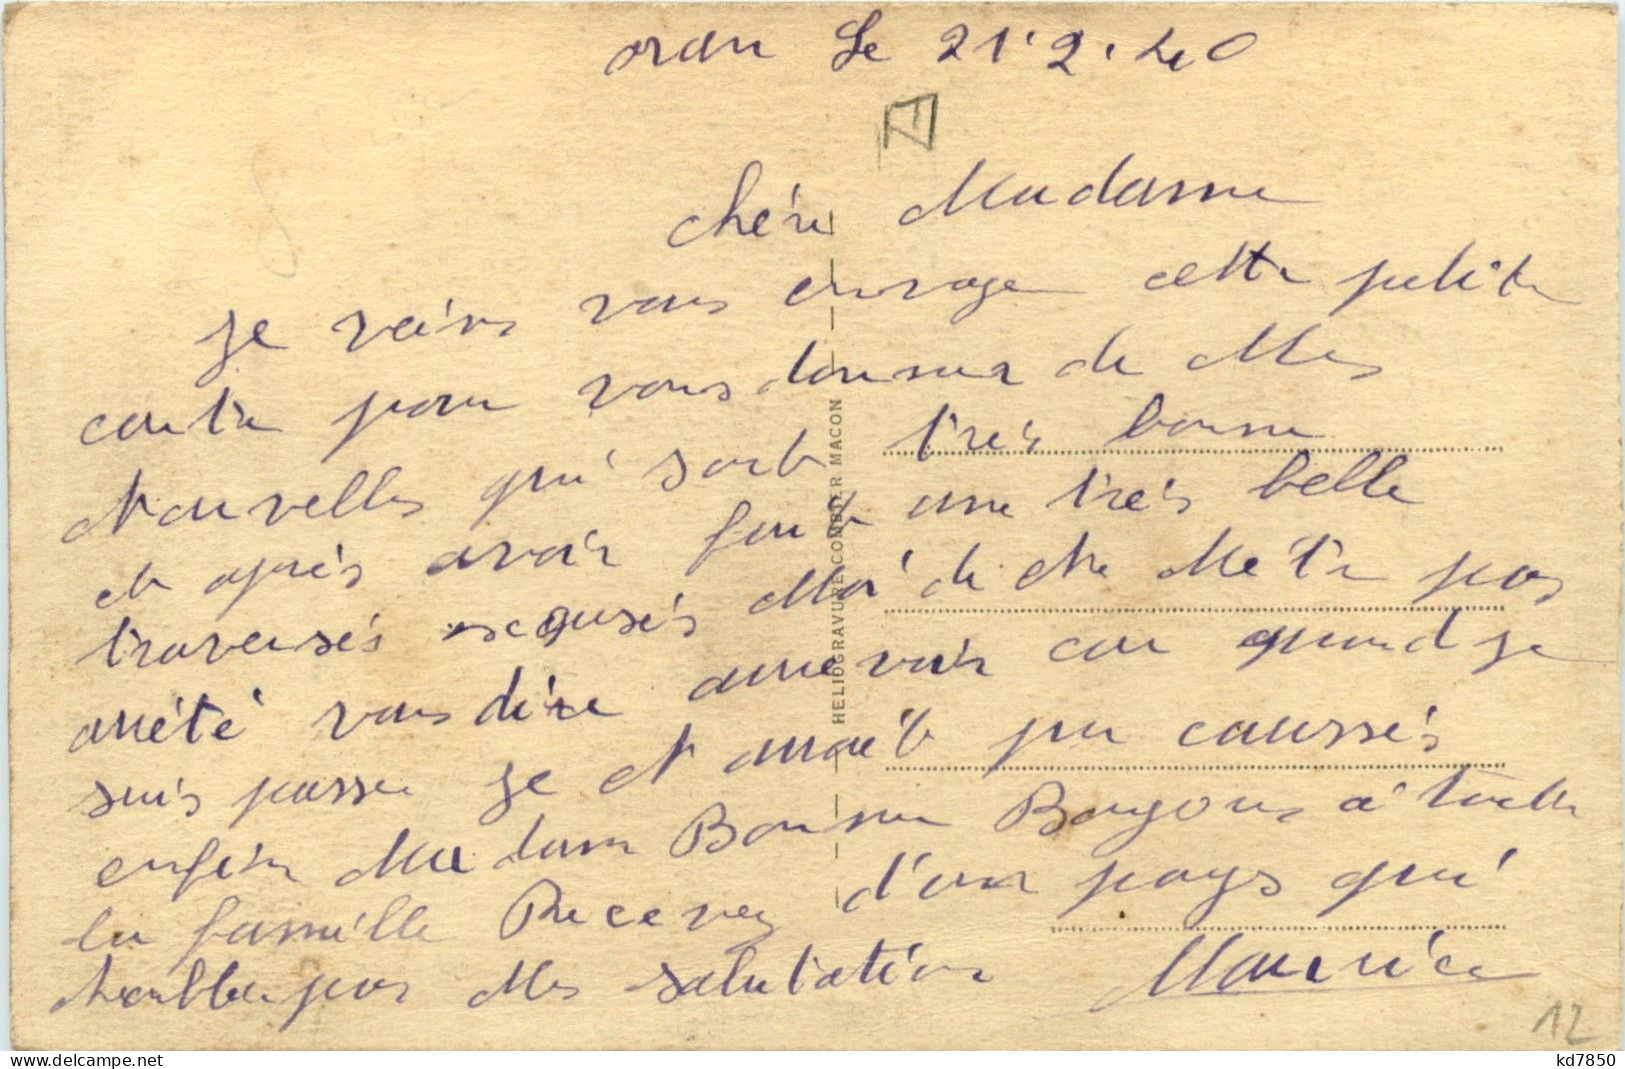 oran Le 21.2.40
chére Madame
je veins vous envoyer cette petite
carte pour vous donner de Mes
Nouvelles qui sont très bonne
et après avoir fait une très belle
traversés escqusés Moi de Ne M'être pas
arrêté vous dire aurevoir car quand je
suis passer je N'aurait pu caussés
enfin Madame Bonne Bonjour à toute
la famille Recevez d'un pays qui
N'oublie pas Mes salutation Maurice
HELIOGRAVURE COMBIER MACON
12
kd7850
delcampe.net